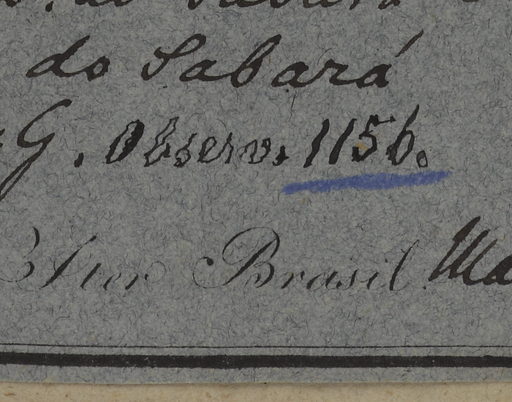 do Sabará
G. Observ. 1156.
Iter Brasil. Ma